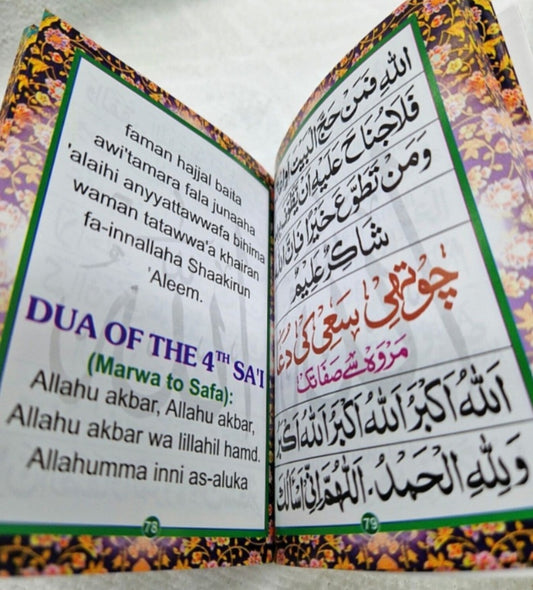 faman hajjal baita
awi'tamara fala junaaha
'alaihi anyyattawwafa bihima
waman tatawwa'a khairan
fa-innallaha Shaakirun
'Aleem.
DUA OF THE 4TH SA'I
(Marwa to Safa):
Allahu akbar, Allahu akbar,
Allahu akbar wa lillahil hamd.
Allahumma inni as-aluka
78
اللهِ فَمَنْ حَجَّ الْبَيْتَ
فَلَا جُنَاحَ عَلَيْهِ اَنْ
وَمَنْ تَطَوَّعَ خَيْرًا
شَاكِرٌ عَلِيْمٌ
چوتھی سعی کی دُعا
مروہ سے صفا تک
اَللهُ اَكْبَرُ اَللهُ اَكْبَرُ اَللهُ اَكْبَرُ
وَلِلّٰهِ الْحَمْدُ۔ اَللّٰهُمَّ اِنِّىْ اَسْاَلُكَ
79